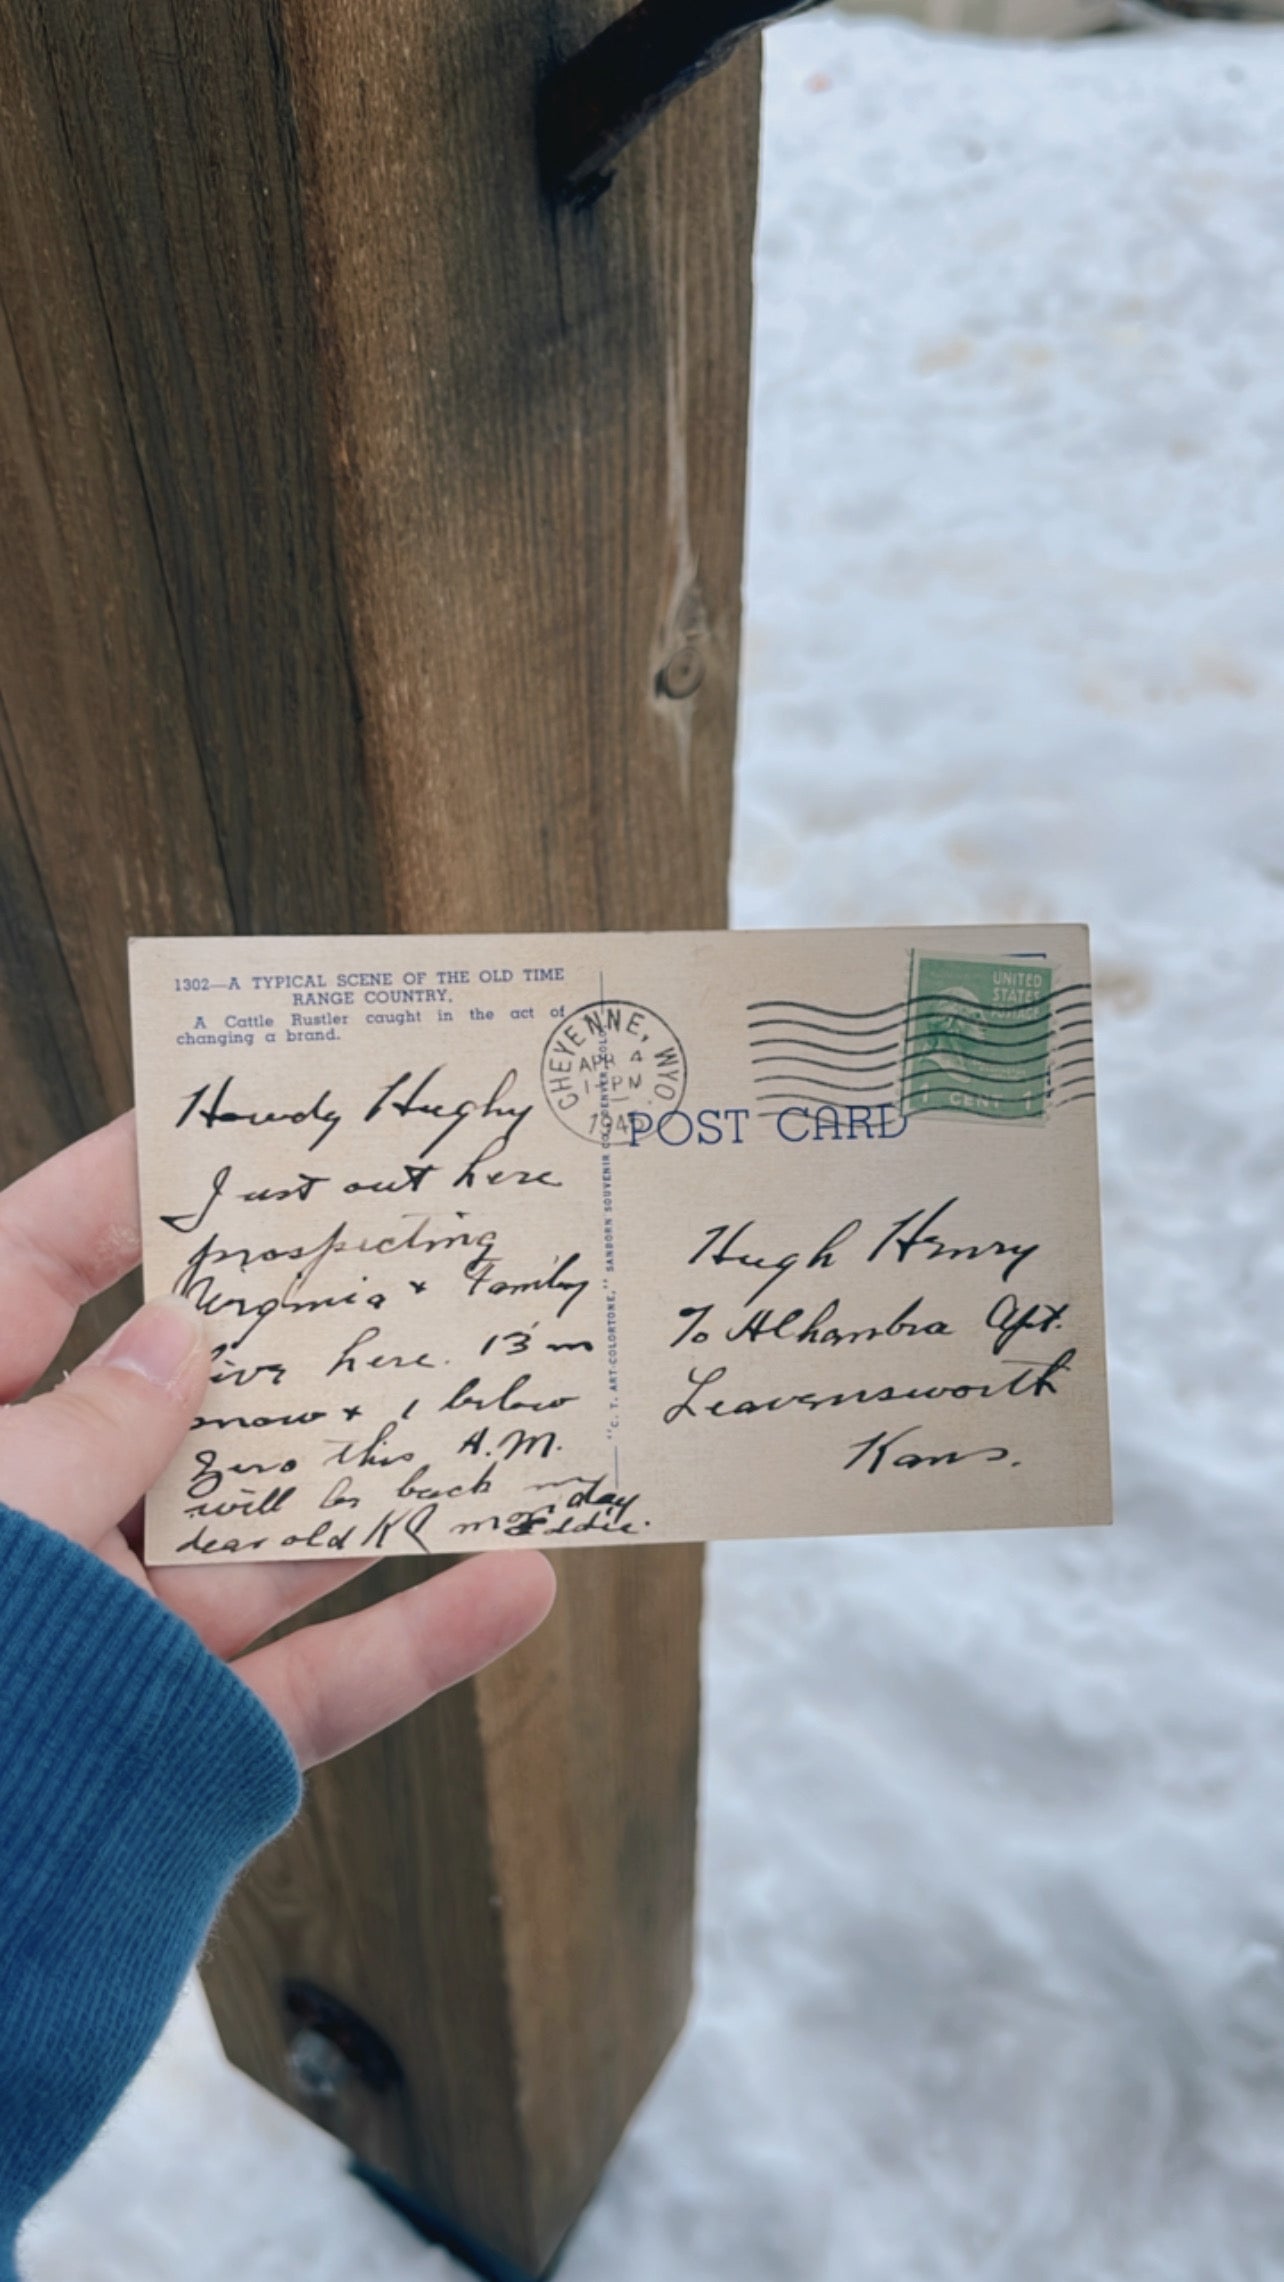 1302—A TYPICAL SCENE OF THE OLD TIME
RANGE COUNTRY.
A Cattle Rustler caught in the act of
changing a brand.
Howdy Hughy
Just out here
prospecting
Virginia + Family
live here. 13" 
snow + 1 below
Zero this A.M.
will be back
day
dear old KC
Eddie.
"C. T. ART-COLORTONE," SANBORN SOUVENIR CO., DENVER, COLO.
CHEYENNE, WYO.
APR 4
1-PM
POST CARD
UNITED
STATES
POSTAGE
1 CENT 1
Hugh Henry
% Alhambra Apt.
Leavensworth
Kans.